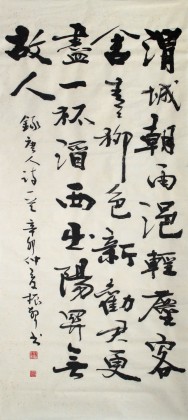 渭城朝雨浥輕塵客
舍青柳色新勸君更
盡一杯酒西出陽關無
故人
錄唐人詩一首辛卯仲夏振郭书